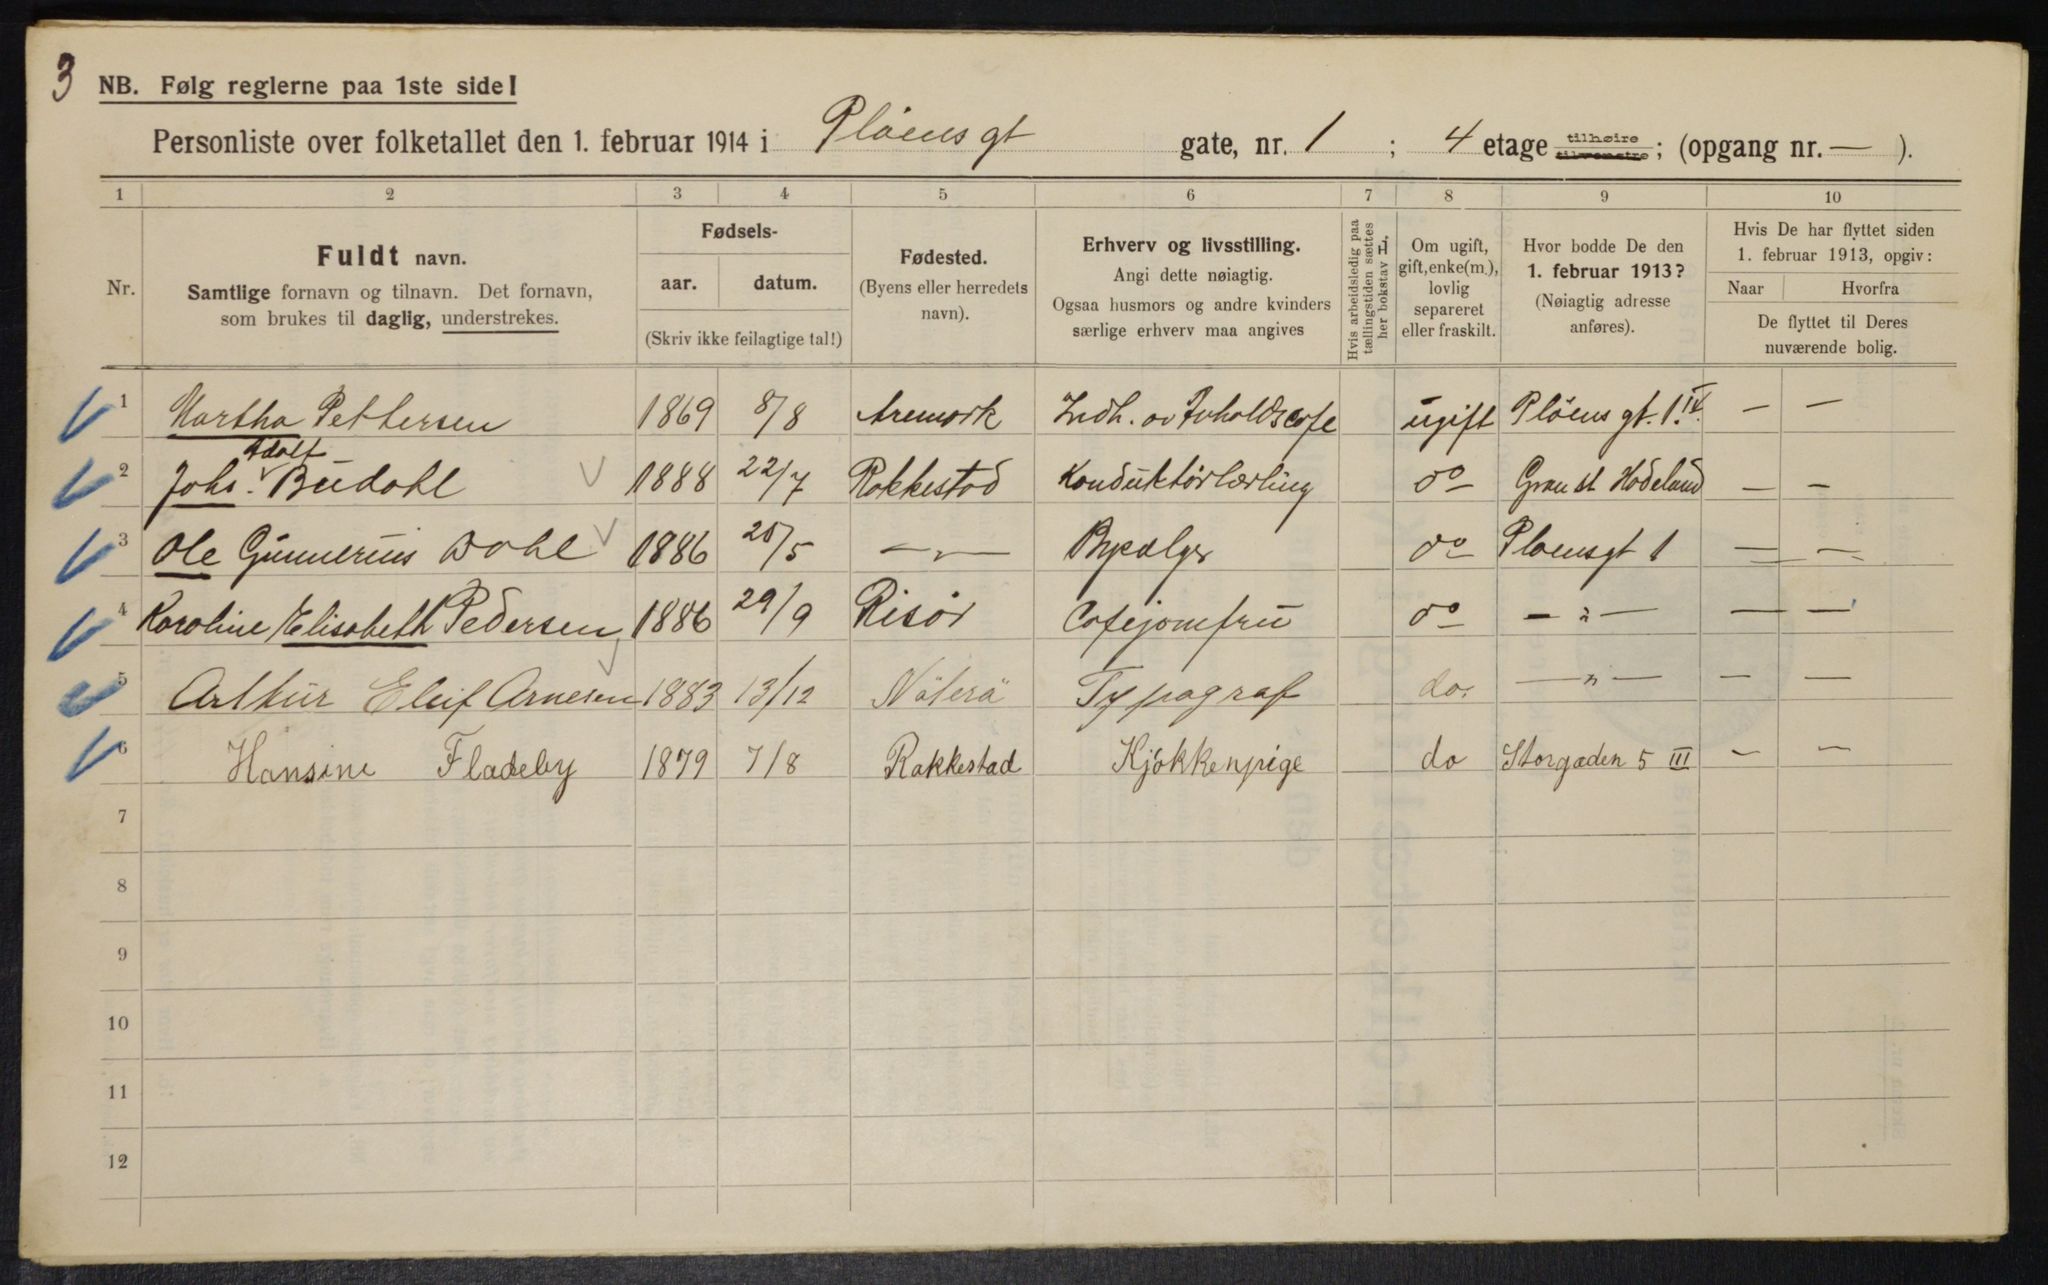 3
NB. Følg reglerne paa 1ste side!
Personliste over folketallet den 1. februar 1914 i Plöens gt gate, nr. 1 ; 4 etage tilhøire tilvenstre; (opgang nr. — ).
1 2 3 4 5 6 7 8 9 10
Nr.
Fuldt navn.
Samtlige fornavn og tilnavn. Det fornavn,
som brukes til daglig, understrekes.
Fødsels-
aar. datum.
(Skriv ikke feilagtige tal!)
Fødested.
(Byens eller herredets
navn).
Erhverv og livsstilling.
Angi dette nøiagtig.
Ogsaa husmors og andre kvinders
særlige erhverv maa angives
Hvis arbeidsledig paa
tællingstiden sættes
her bokstav L.
Om ugift,
gift, enke(m.),
lovlig
separeret
eller fraskilt.
Hvor bodde De den
1. februar 1913?
(Nøiagtig adresse
anføres).
Hvis De har flyttet siden
1. februar 1913, opgiv:
Naar Hvorfra
De flyttet til Deres
nuværende bolig.
1 Martha Pettersen 1869 8/8 Aremark Indh. av Avholdscafe ugift Plöens gt. 1. IV. — —
Adolf
2 Johs. Budahl 1888 22/7 Rakkestad Konduktörlærling do Gran st Hadeland — —
3 Ole Gunnerius Dahl 1886 20/5 — " — do Ploensgt 1 — —
4 Karoline Elisabeth Pedersen 1886 29/9 Risör Cafejomfru do — " — — —
5 Arthur Eluf Arnesen 1883 13/12 Nöterö Typograf do. — " — — —
6 Hansine Fladeby 1879 7/8 Rakkestad Kjökkenpige do Storgaden 5 III — —
7
8
9
10
11
12